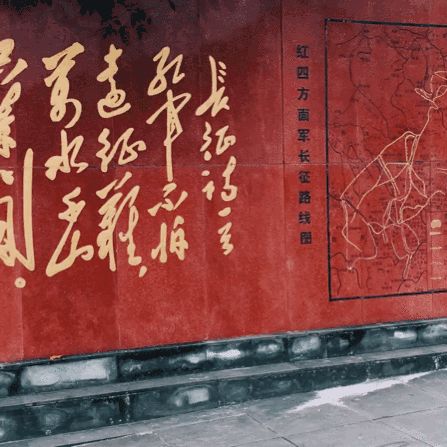 長征诗一首
红军不怕
远征难，
万水千山
只等闲。
红四方面军长征路线图